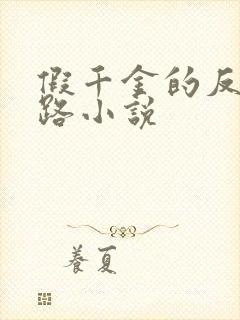 假千金的反
路小说
养夏